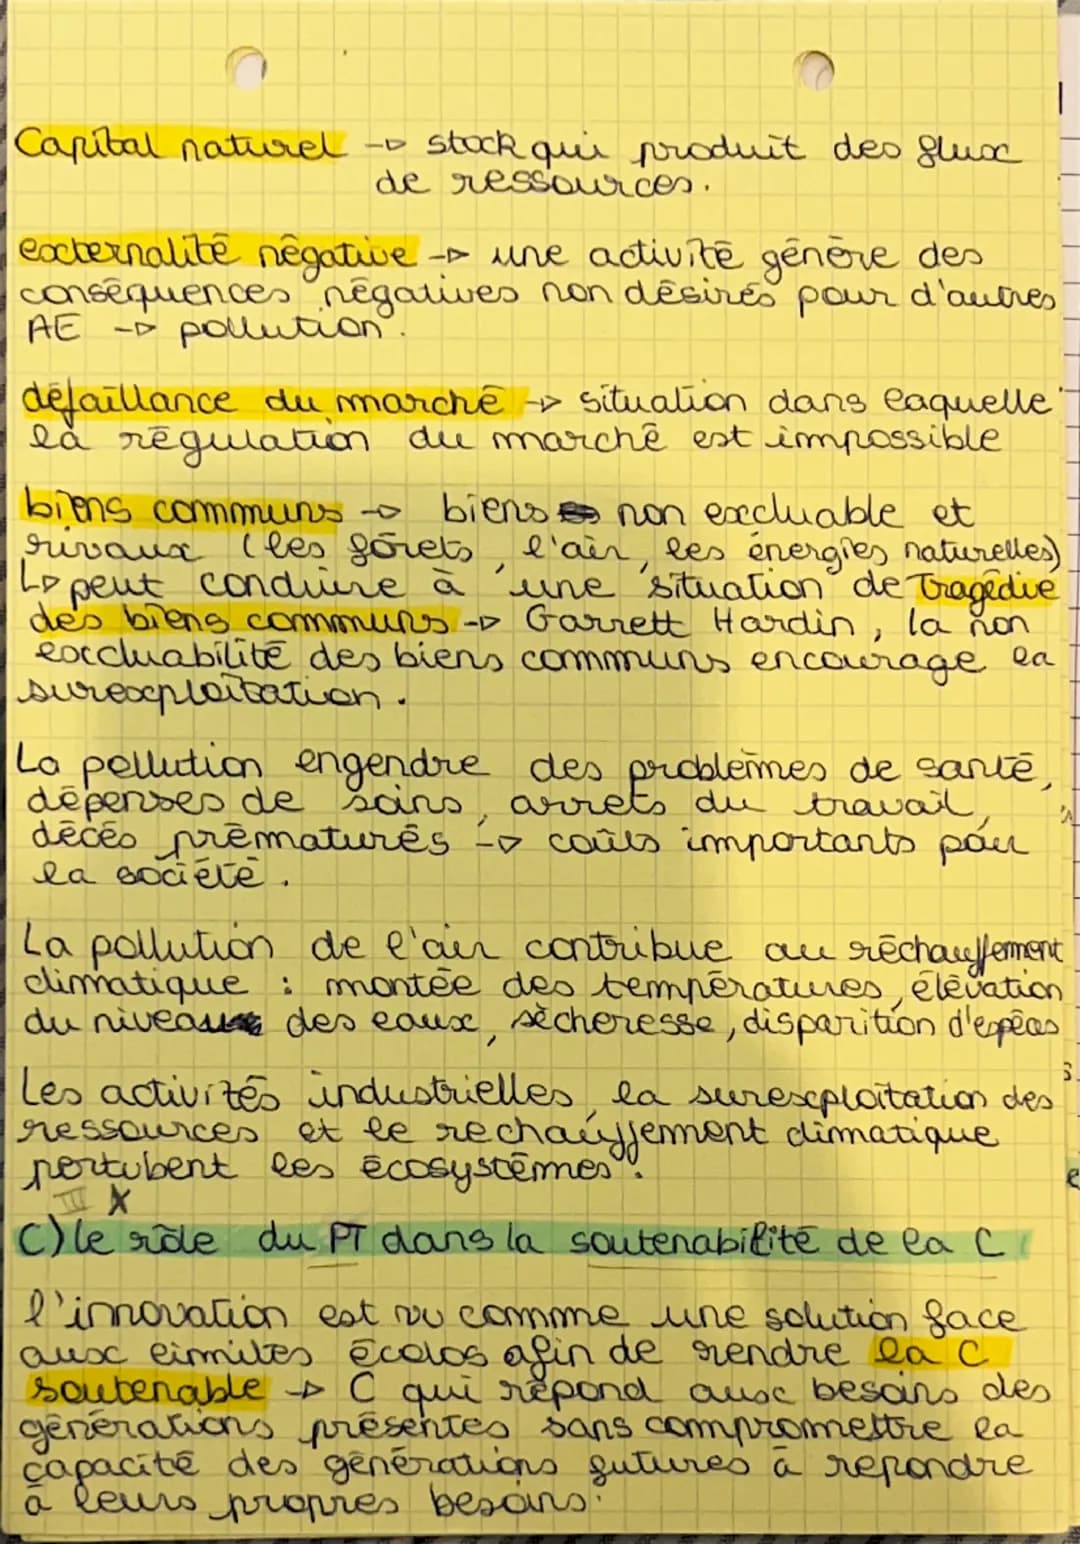 Capital naturel → stock qui produit des flux
de ressources.
externalité négative → une activité génère des
conséquences négatives non désirés pour d'autres
AE → pollution.
défaillance du marché → situation dans laquelle
la régulation du marché est impossible
biens communs → biens non excluable et
rivaux (les fôrets, l'air, les énergies naturelles)
↳ peut conduire à une situation de Tragédie
des biens communs → Garrett Hardin, la non
excluabilité des biens communs encourage la
surexploitation.
La pollution engendre des problèmes de santé,
dépenses de soins, arrets du travail,
décés prématurés → coûts important pour
la société.
La pollution de l'air contribue au réchauffement
climatique : montée des températures, élévation
du niveau des eaux, sècheresse, disparition d'espèces
Les activités industrielles, la surexploitation des
ressources et le rechauffement climatique
pertubent les écosystèmes.
III X
C) le rôle du PT dans la soutenabilité de la C
l'innovation est vu comme une solution face
aux limites écolos afin de rendre la C
soutenable → C qui répond aux besoins des
générations présentes sans compromettre la
capacité des générations futures à repondre
à leurs propres besoins.